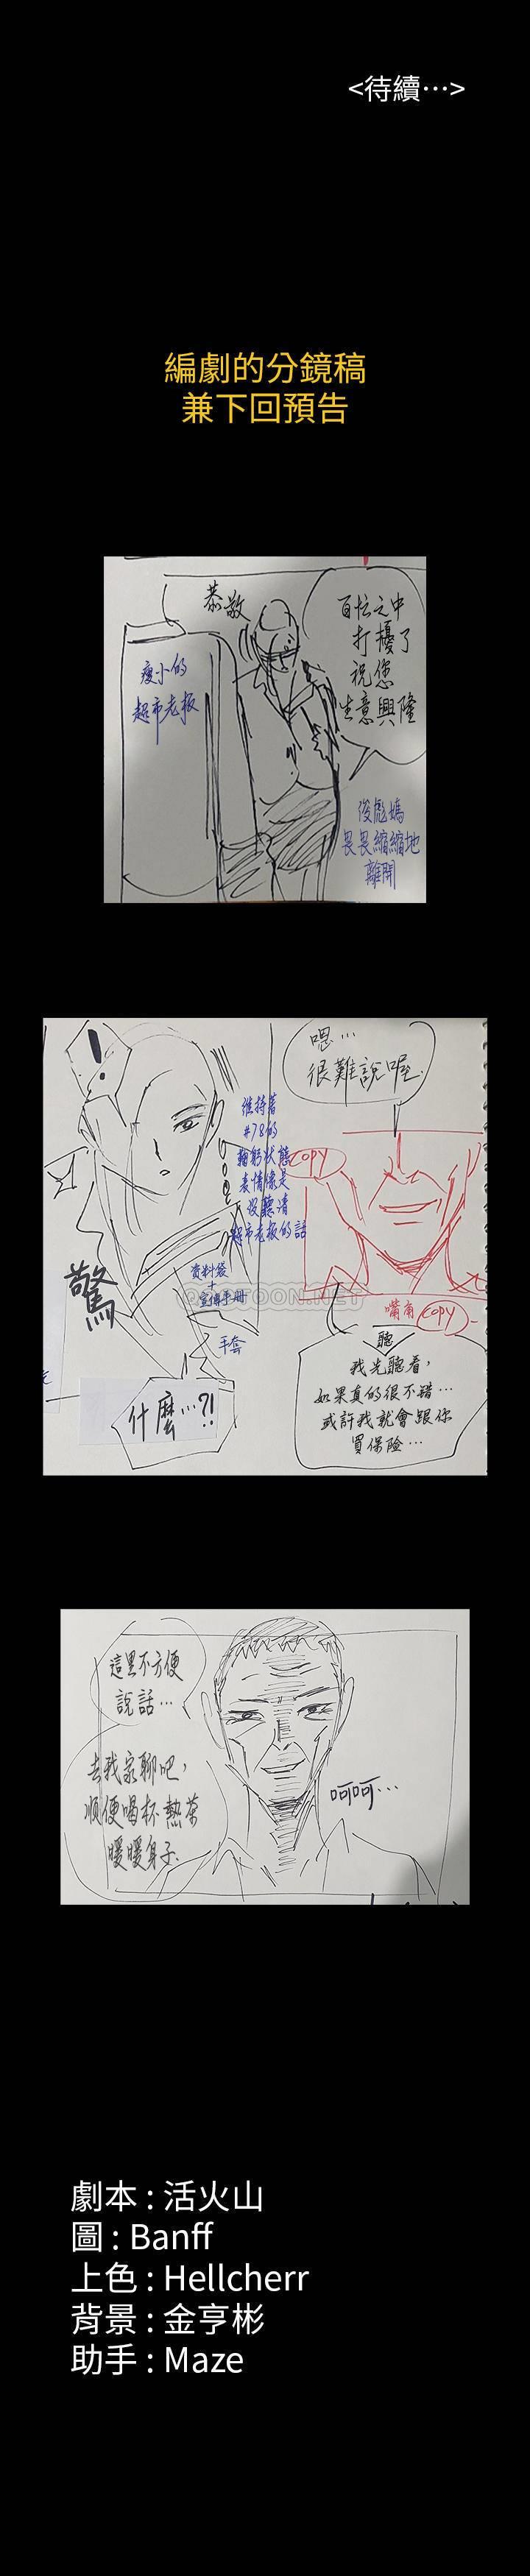 <待續…>
編劇的分鏡稿
兼下回預告
恭敬
百忙之中
打擾了
祝您
生意興隆
瘦小的
超市老板
俊彪媽
畏畏縮縮地
離開
嗯…
很難說喔.
維持著
#78的
鞠躬狀態
表情像是
沒聽清
超市老板的話
COPY
驚
资料袋
+
宣傳手册
手套
嘴角 COPY
什麼…?!
聽
我先聽看,
如果真的很不錯…
或許我就會跟你
買保險…
這里不方便
說話…
去我家聊吧,
顺便喝杯熱茶
暖暖身子.
呵呵…
劇本 : 活火山
圖 : Banff
上色 : Hellcherr
背景 : 金亨彬
助手 : Maze